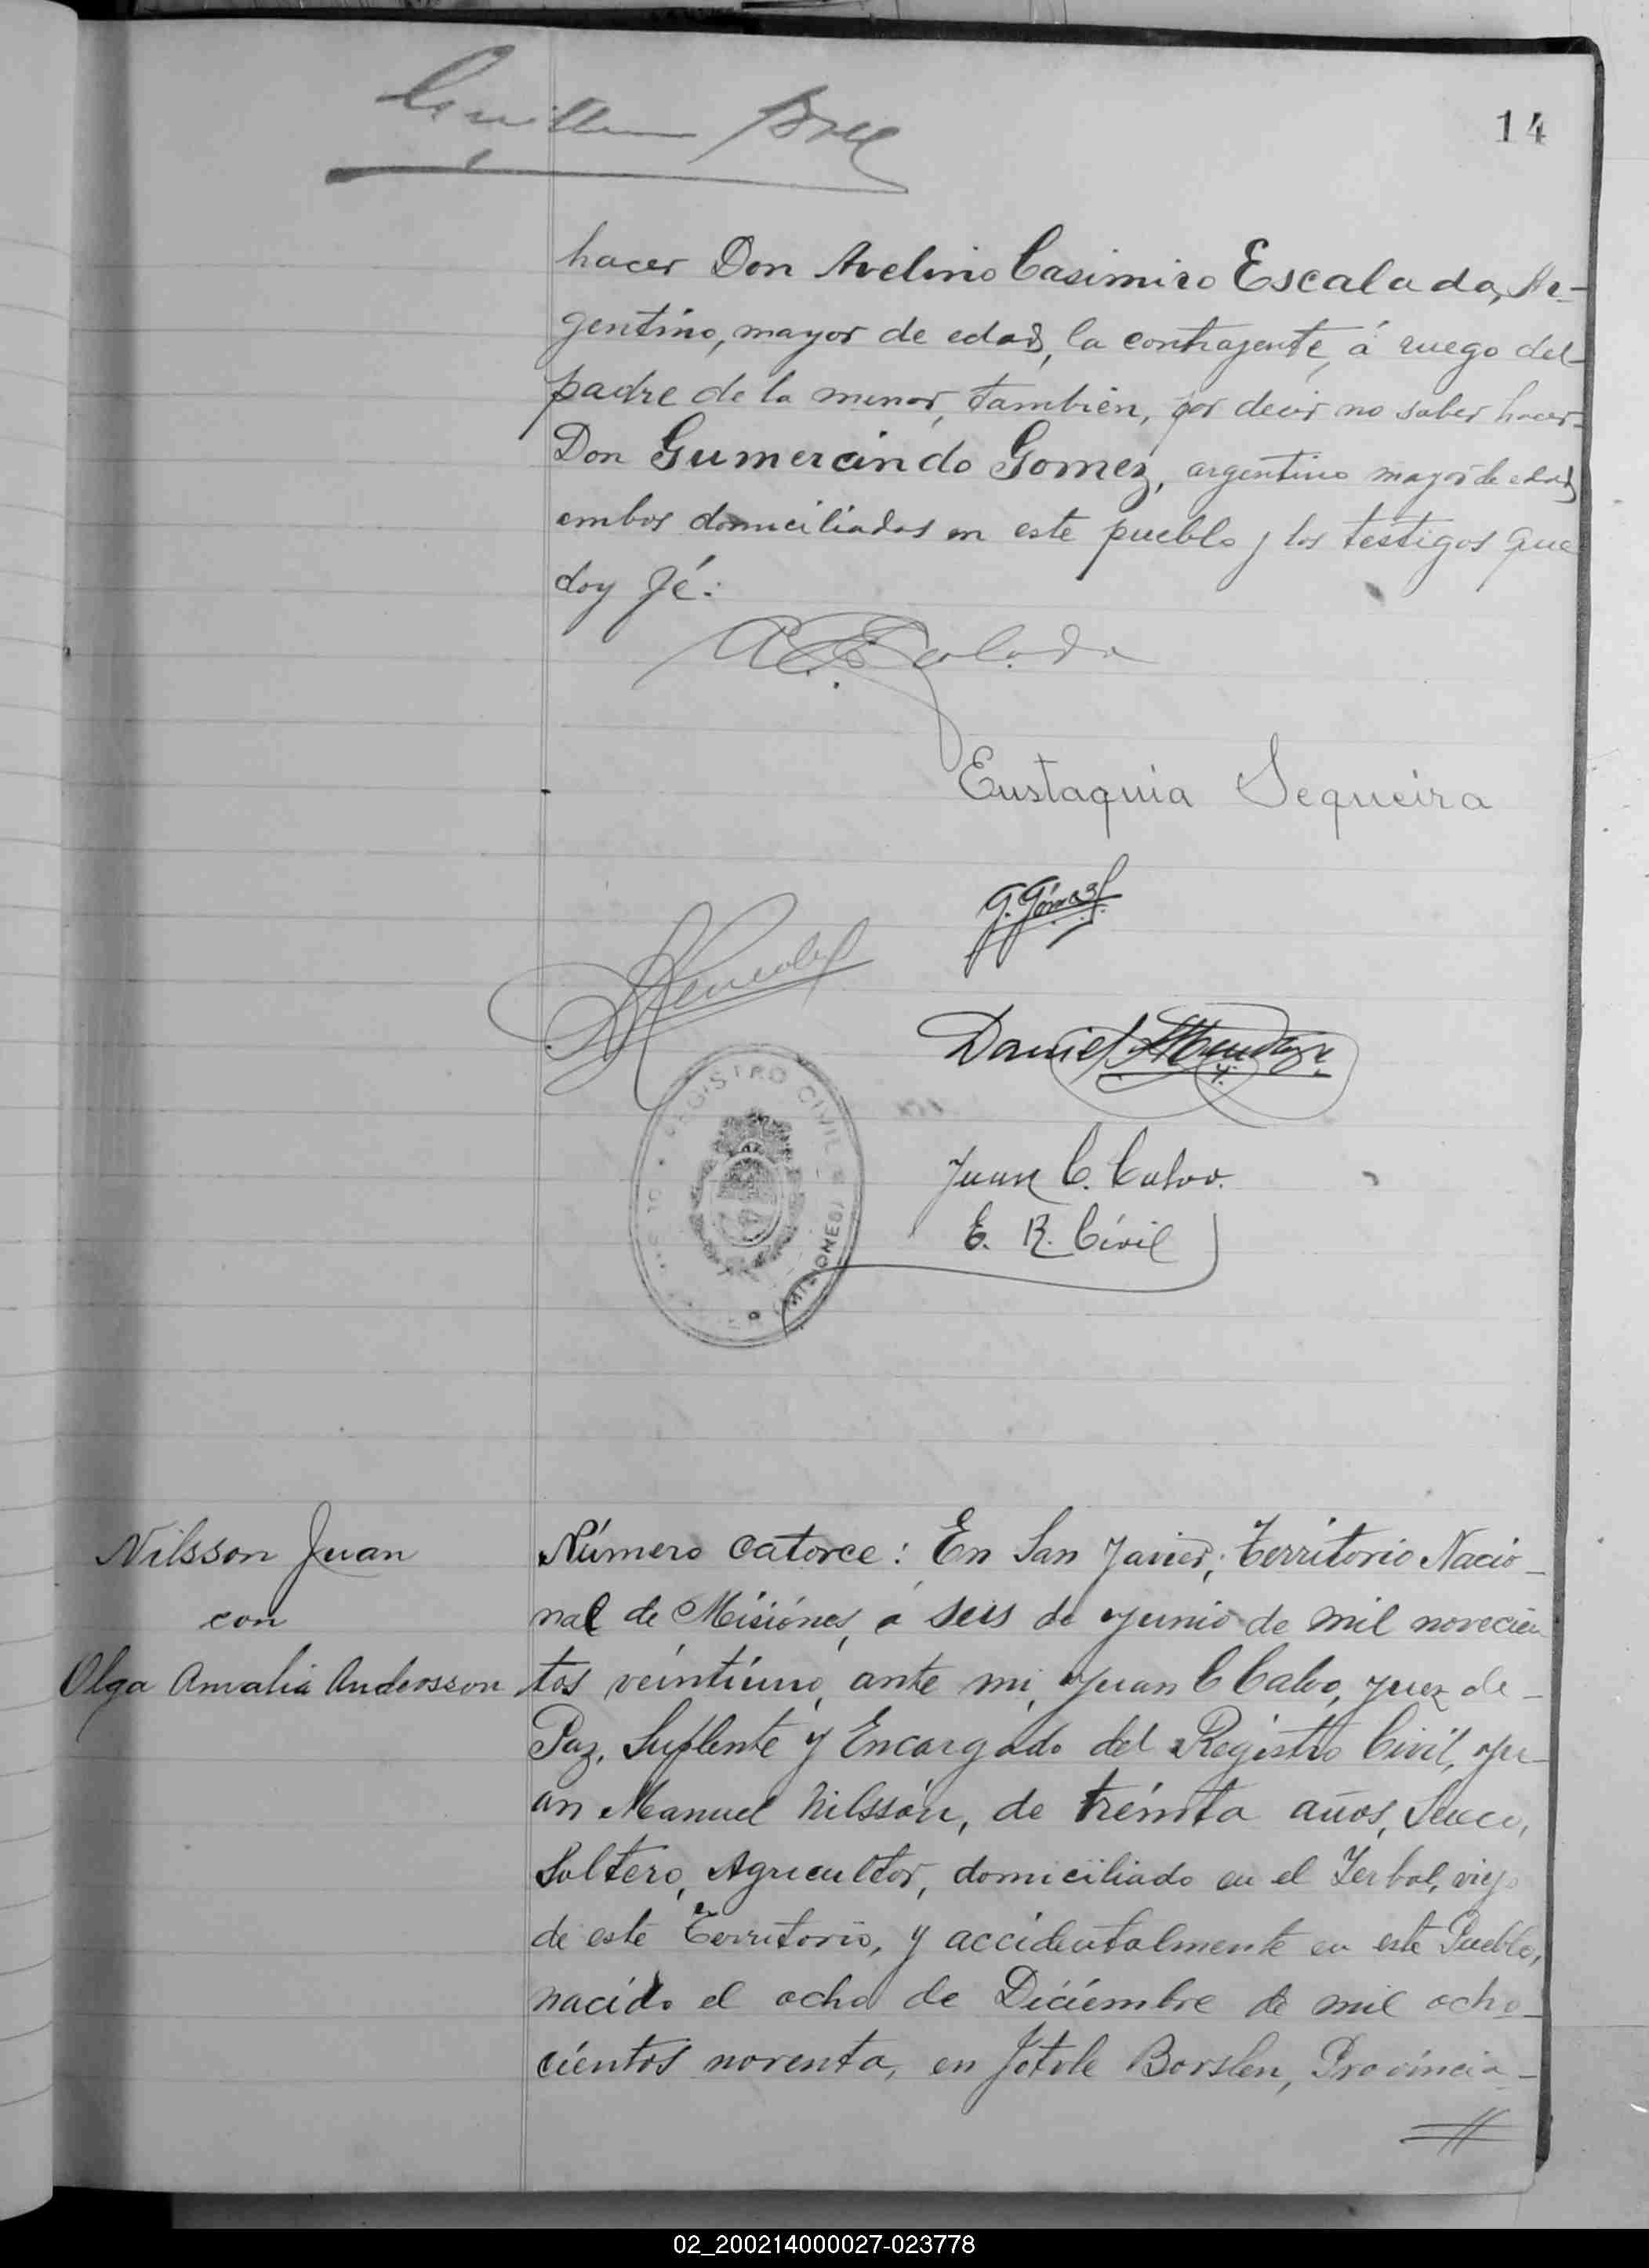 14
hacer Don Avelino Casimiro Escalada, Ar-
gentino, mayor de edad, la contrajente, á ruego del-
padre de la menor, tambien, por decir no saber hacer-
Don Gumercindo Gomez, argentino mayor de edad
ambos domiciliados en este pueblo y los testigos que
doy fé:
Eustaquia Sequeira
G. Gómez
Daniel
REGISTRO CIVIL
(MISIONES)
Juan C. Calvo.
E. R. Civil
Nilsson Juan
con
Olga Amalia Andersson
Número catorce: En San Javier, Territorio Nacio-
nal de Misiónes, á seis de Junio de mil novecien
tos veintiuno, ante mi, Juan C Calvo, Juez de-
Paz, Suplente y Encargado del Registro Civil, Ju-
an Manuel Nilssón, de tréinta años, Sueco,
Soltero, Agricultor, domiciliado en el Yerbal, viejo
de este Territorio, y accidentalmente en este Pueblo,
nacido el ocho de Diciémbre de mil ocho-
cientos noventa, en Borslen, Provincia-
02_200214000027-023778